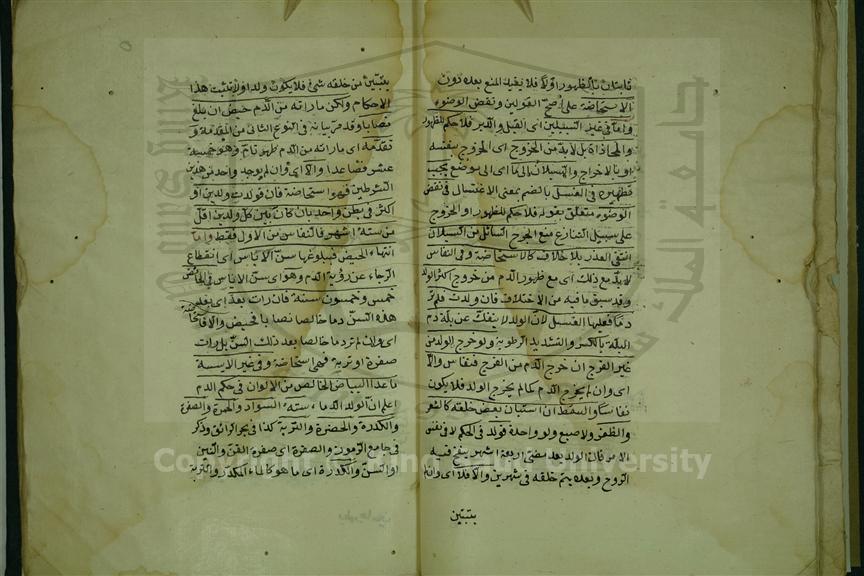 فاستان بالظهور اولا فلا يفيد المنع بعده دون
الاستحاضة على اصح القولين ونقض الوضوء
واما في غير السبيلين اى القبل والدبر فلا حكم للظهور
والمحاذاة بل لابد من الخروج اى الخروج بنفسه
او بالاخراج والسيلان الى ما اى الى موضع يجب
تطهيره في الغسل بالضم بمعنى الاغتسال في نقض
الوضوء متعلق بقوله فلا حكم للظهور او الخروج
على سبيل التنازع فمنع الجرح السائل من السيلان
انتفى العذر بلا خلاف كالاستحاضة وفى النفاس
لابد مع ذلك اى مع ظهور الدم من خروج اكثر الولد
وقد سبق ما فيه من الاختلاف فان ولدت فلم تر
دما فعليها الغسل لان الولد لا ينفك عن بلة دم
البلة بالكسر والتشديد الرطوبة ولو خرج الولد من
غير الفرج ان خرج الدم من الفرج فنفاس والا
اى وان لم يخرج الدم كما لم يخرج الولد فلا يكون
نفاسا والسقط ان استبان بعض خلقه كالشعر
والظفر ولا صبع ولو واحدة فولد في الحكم لا في نفس
الامر فان الولد بعد مضى اربعة اشهر ينفخ فيه
الروح وبعده يتم خلقه في شهرين والا فلا اى وان لم
يتبين
يتبين من خلقه شئ فلا يكون ولدا ولا تثبت هذا
الاحكام ولكن ما راته من الدم حيض ان بلغ
نصابا وقد مر بيانه في النوع الثانى من المقدمة و
تقدمه اى ما راته من الدم طهر تام وهو خمسة
عشر فصاعدا والا اى وان لم يوجد واحد من هذين
الشرطين فهو استحاضة فان ولدت ولدين او
اكثر في بطن واحد بان كان بين كل ولدين اقل
من ستة اشهر فالنفاس من الاول فقط واما
انتهاء الحيض فببلوغها سن الاياس اى انقطاع
الرجاء عن رؤية الدم وهو اى سن الاياس في الحائض
خمس وخمسون سنة فان رات بعد اى بعد
هذه السن دما خالصا نصابا فحيض والا
اى وان لم تر دما خالصا بعد ذلك السن بل رات
صفرة او تربة فهى استحاضة وفى غير الايسة
ما عدا البياض الخالص من الالوان في حكم الدم
اعلم ان الولد الدماء ستة السواد والحمرة والصفرة
والكدرة والخضرة والتربة كذا في بحر الرائق وذكر
في جامع الرموز والصفرة اى صفرة القز والتبن
او السن والكدرة اى ما هو كالماء المكدر والتربة
Copyright © King Saud University
جامعة الملك سعود